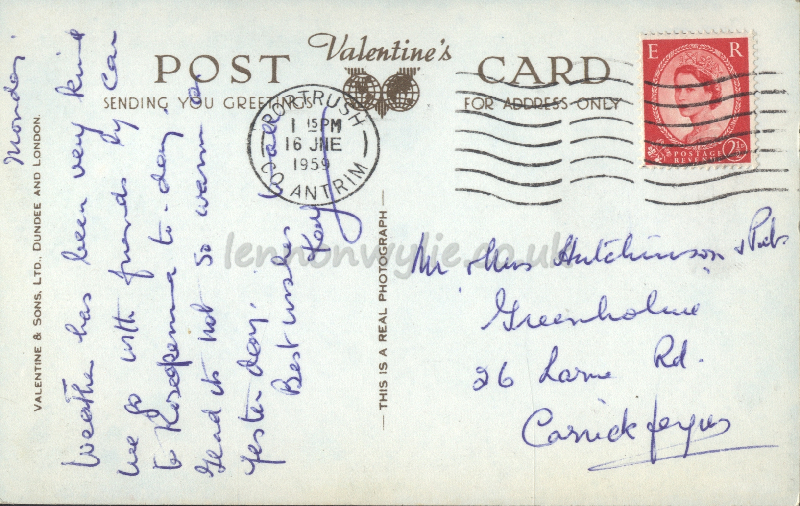 Valentine's
POST CARD
SENDING YOU GREETINGS
FOR ADDRESS ONLY
PORTRUSH
1 15 PM
16 JNE
1959
CO. ANTRIM
E R
POSTAGE
REVENUE
2½
VALENTINE & SONS, LTD., DUNDEE AND LONDON.
THIS IS A REAL PHOTOGRAPH
Monday.
Weather has been very kind
we go with friends by car
to Rosapenna to-day.
Glad its not so warm as
yesterday.
Best wishes to all
Mr & Mrs Hutchinson &
Greenholme
26 Larne Rd.
Carrickfergus
lennonwylie.co.uk